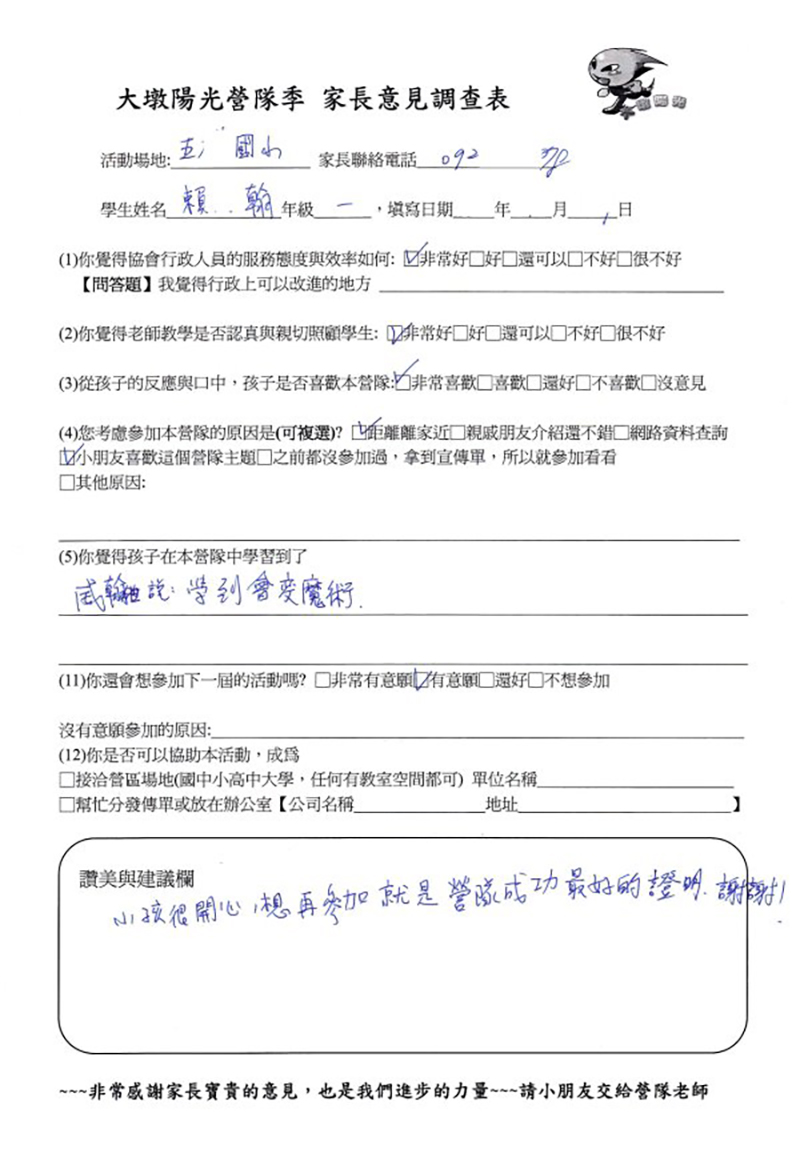 大墩陽光營隊季 家長意見調查表
大墩陽光
活動場地: 五 國小 家長聯絡電話 092
學生姓名 賴 翰 年級 一 ，填寫日期 年 月 日
(1)你覺得協會行政人員的服務態度與效率如何: ☑非常好□好□還可以□不好□很不好
【問答題】我覺得行政上可以改進的地方
(2)你覺得老師教學是否認真與親切照顧學生: ☑非常好□好□還可以□不好□很不好
(3)從孩子的反應與口中，孩子是否喜歡本營隊:☑非常喜歡□喜歡□還好□不喜歡□沒意見
(4)您考慮參加本營隊的原因是(可複選)? ☑距離離家近□親戚朋友介紹還不錯□網路資料查詢
☑小朋友喜歡這個營隊主題□之前都沒參加過，拿到宣傳單，所以就參加看看
□其他原因:
(5)你覺得孩子在本營隊中學習到了
威翰說: 學到會變魔術.
(11)你還會想參加下一屆的活動嗎? □非常有意願☑有意願□還好□不想參加
沒有意願參加的原因:
(12)你是否可以協助本活動，成為
□接洽營區場地(國中小高中大學，任何有教室空間都可) 單位名稱
□幫忙分發傳單或放在辦公室【公司名稱 地址 】
讚美與建議欄
小孩很開心,想再參加就是營隊成功最好的證明. 謝謝!
~~~非常感謝家長寶貴的意見，也是我們進步的力量~~~請小朋友交給營隊老師